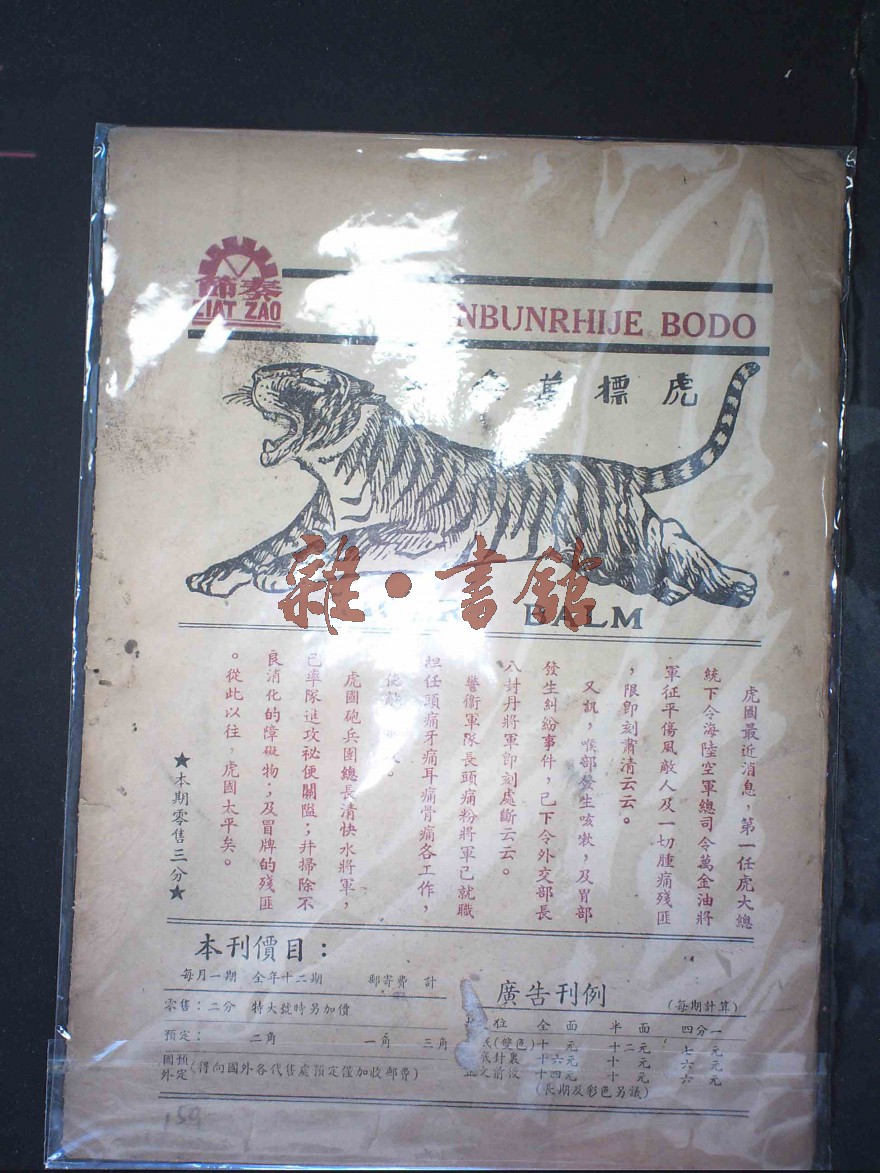 節奏
ZIAT ZAO
NBUNRHIJE BODO
虎標萬金
BALM
雜·書館
虎國最近消息，第一任虎大總
統下令海陸空軍總司令萬金油將
軍征平傷風敵人及一切腫痛殘匪
，限卽刻肅清云云。
又訊，喉部發生咳嗽，及胃部
發生糾紛事件，已下令外交部長
八封丹將軍卽刻處斷云云。
警衞軍隊長頭痛粉將軍已就職
担任頭痛牙痛耳痛骨痛各工作，
虎國砲兵團總長清快水將軍，
已率隊進攻祕便關隘；幷掃除不
良消化的障礙物；及冒牌的殘匪
。從此以往，虎國太平矣。
★本期零售三分★
本刊價目：
每月一期 全年十二期 郵寄費 計
零售：二分 特大號時另加價
預定： 二角 一角 三角
國外預定(得向國外各代售處預定僅加收郵費)
廣告刊例 (每期計算)
位 全面 半面 四分一
紙(雙色) 十 元 十二元 七 元
底封裏 十六元 十 元 六 元
正文前後 十四元 十 元 六 元
(長期及彩色另議)
159